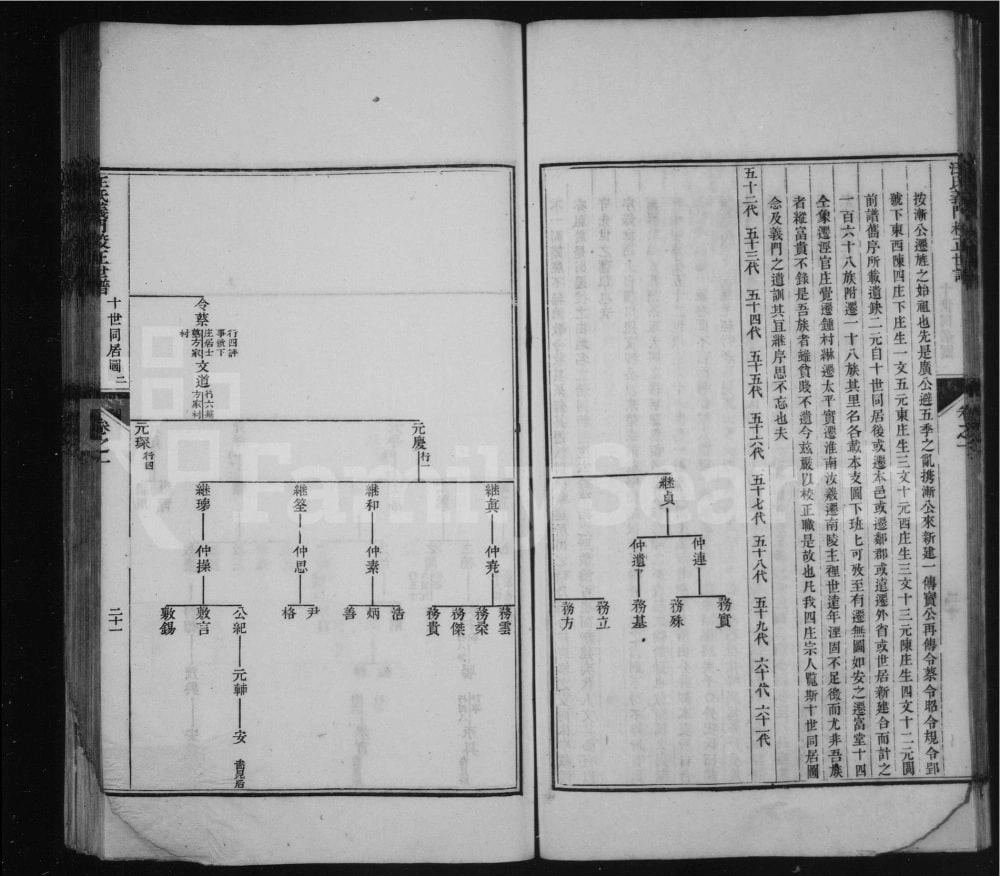 汪氏義門校正世譜
按漸公遷旌之始祖也先是廣公避五季之亂携漸公來新建一傳實公再傳令蔡令耶令規令郢
號下東西陳四庄下庄生一文五元東庄生三文十元西庄生三文十三元陳庄生四文十二元閱
前譜舊序所載遺缺二元自十世同居後或遷本邑或遷鄰郡或遠遷外省或世居新建合而計之
一百六十八族附遷一十八族其里名各載本支圖下班七可攷至有遷無圖如安之遷富堂十四
全象遷涇官庄覺遷鍾村綝遷太平實遷淮南汝義遷南陵主裡世遠年湮固不足徵而尤非吾族
者縱富貴不錄是吾族者雖貧賤不遺今茲嚴以校正職是故也凡我四庄宗人覧斯十世同居圖
念及義門之遺訓其亘継序思不忘也夫
五十二代 五十三代 五十四代 五十五代 五十六代 五十七代 五十八代 五十九代 六十代 六十一代
継貞
仲連
仲遺
務實
務殊
務基
務立
務方
令蔡
行四評
事號下
庄居士
墓方家
村
文道
行六墓
方家村
元慶
行一
元琛
行四
継眞
仲堯
務雲
務桑
務傑
務貴
継和
仲素
浩
炳
善
継筌
仲思
尹
格
継瑏
仲操
公紀
元輔
安
舊見后
敷言
敷錫
汪氏義門校正世譜
十世同居圖二
卷之一
二十一
FamilySearch